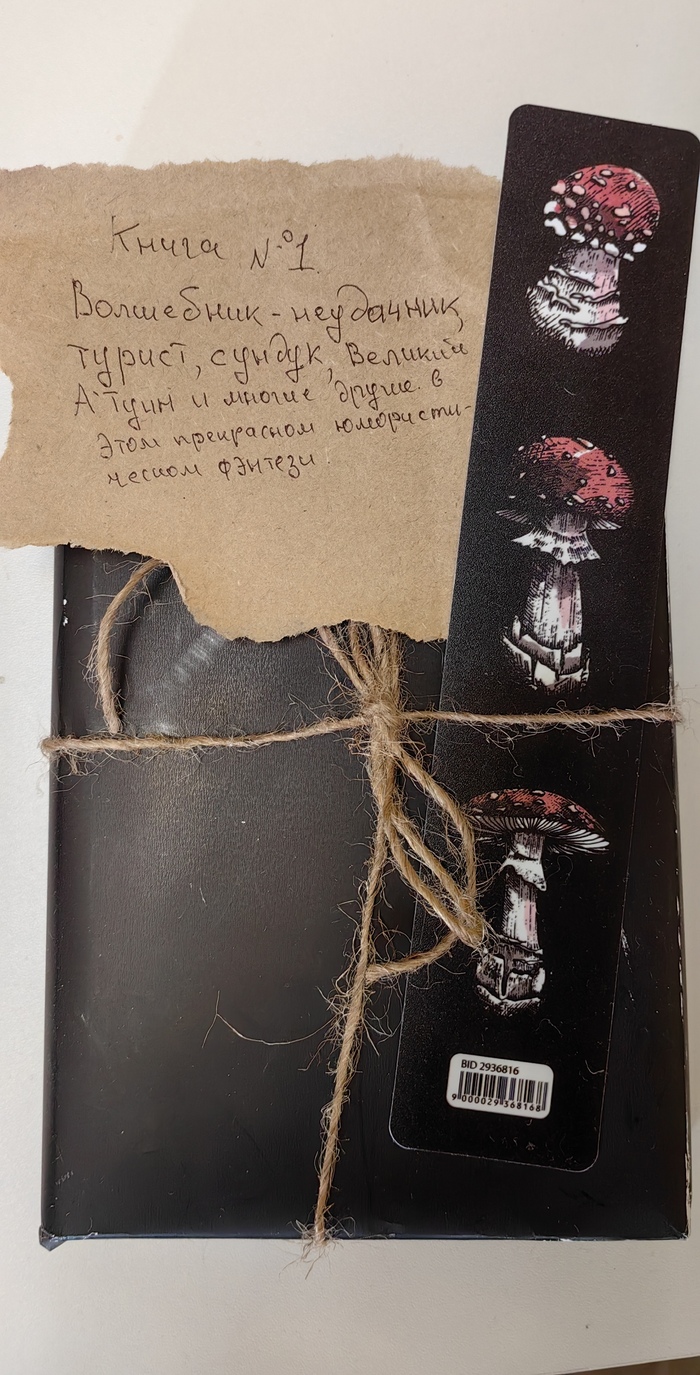 Книга №1.
Волшебник-неудачник,
турист, сундук, Великий
А'Туин и многие другие. в
этом прекрасном юмористи-
ческом фэнтези.
BID 2936816
9 000029 368168